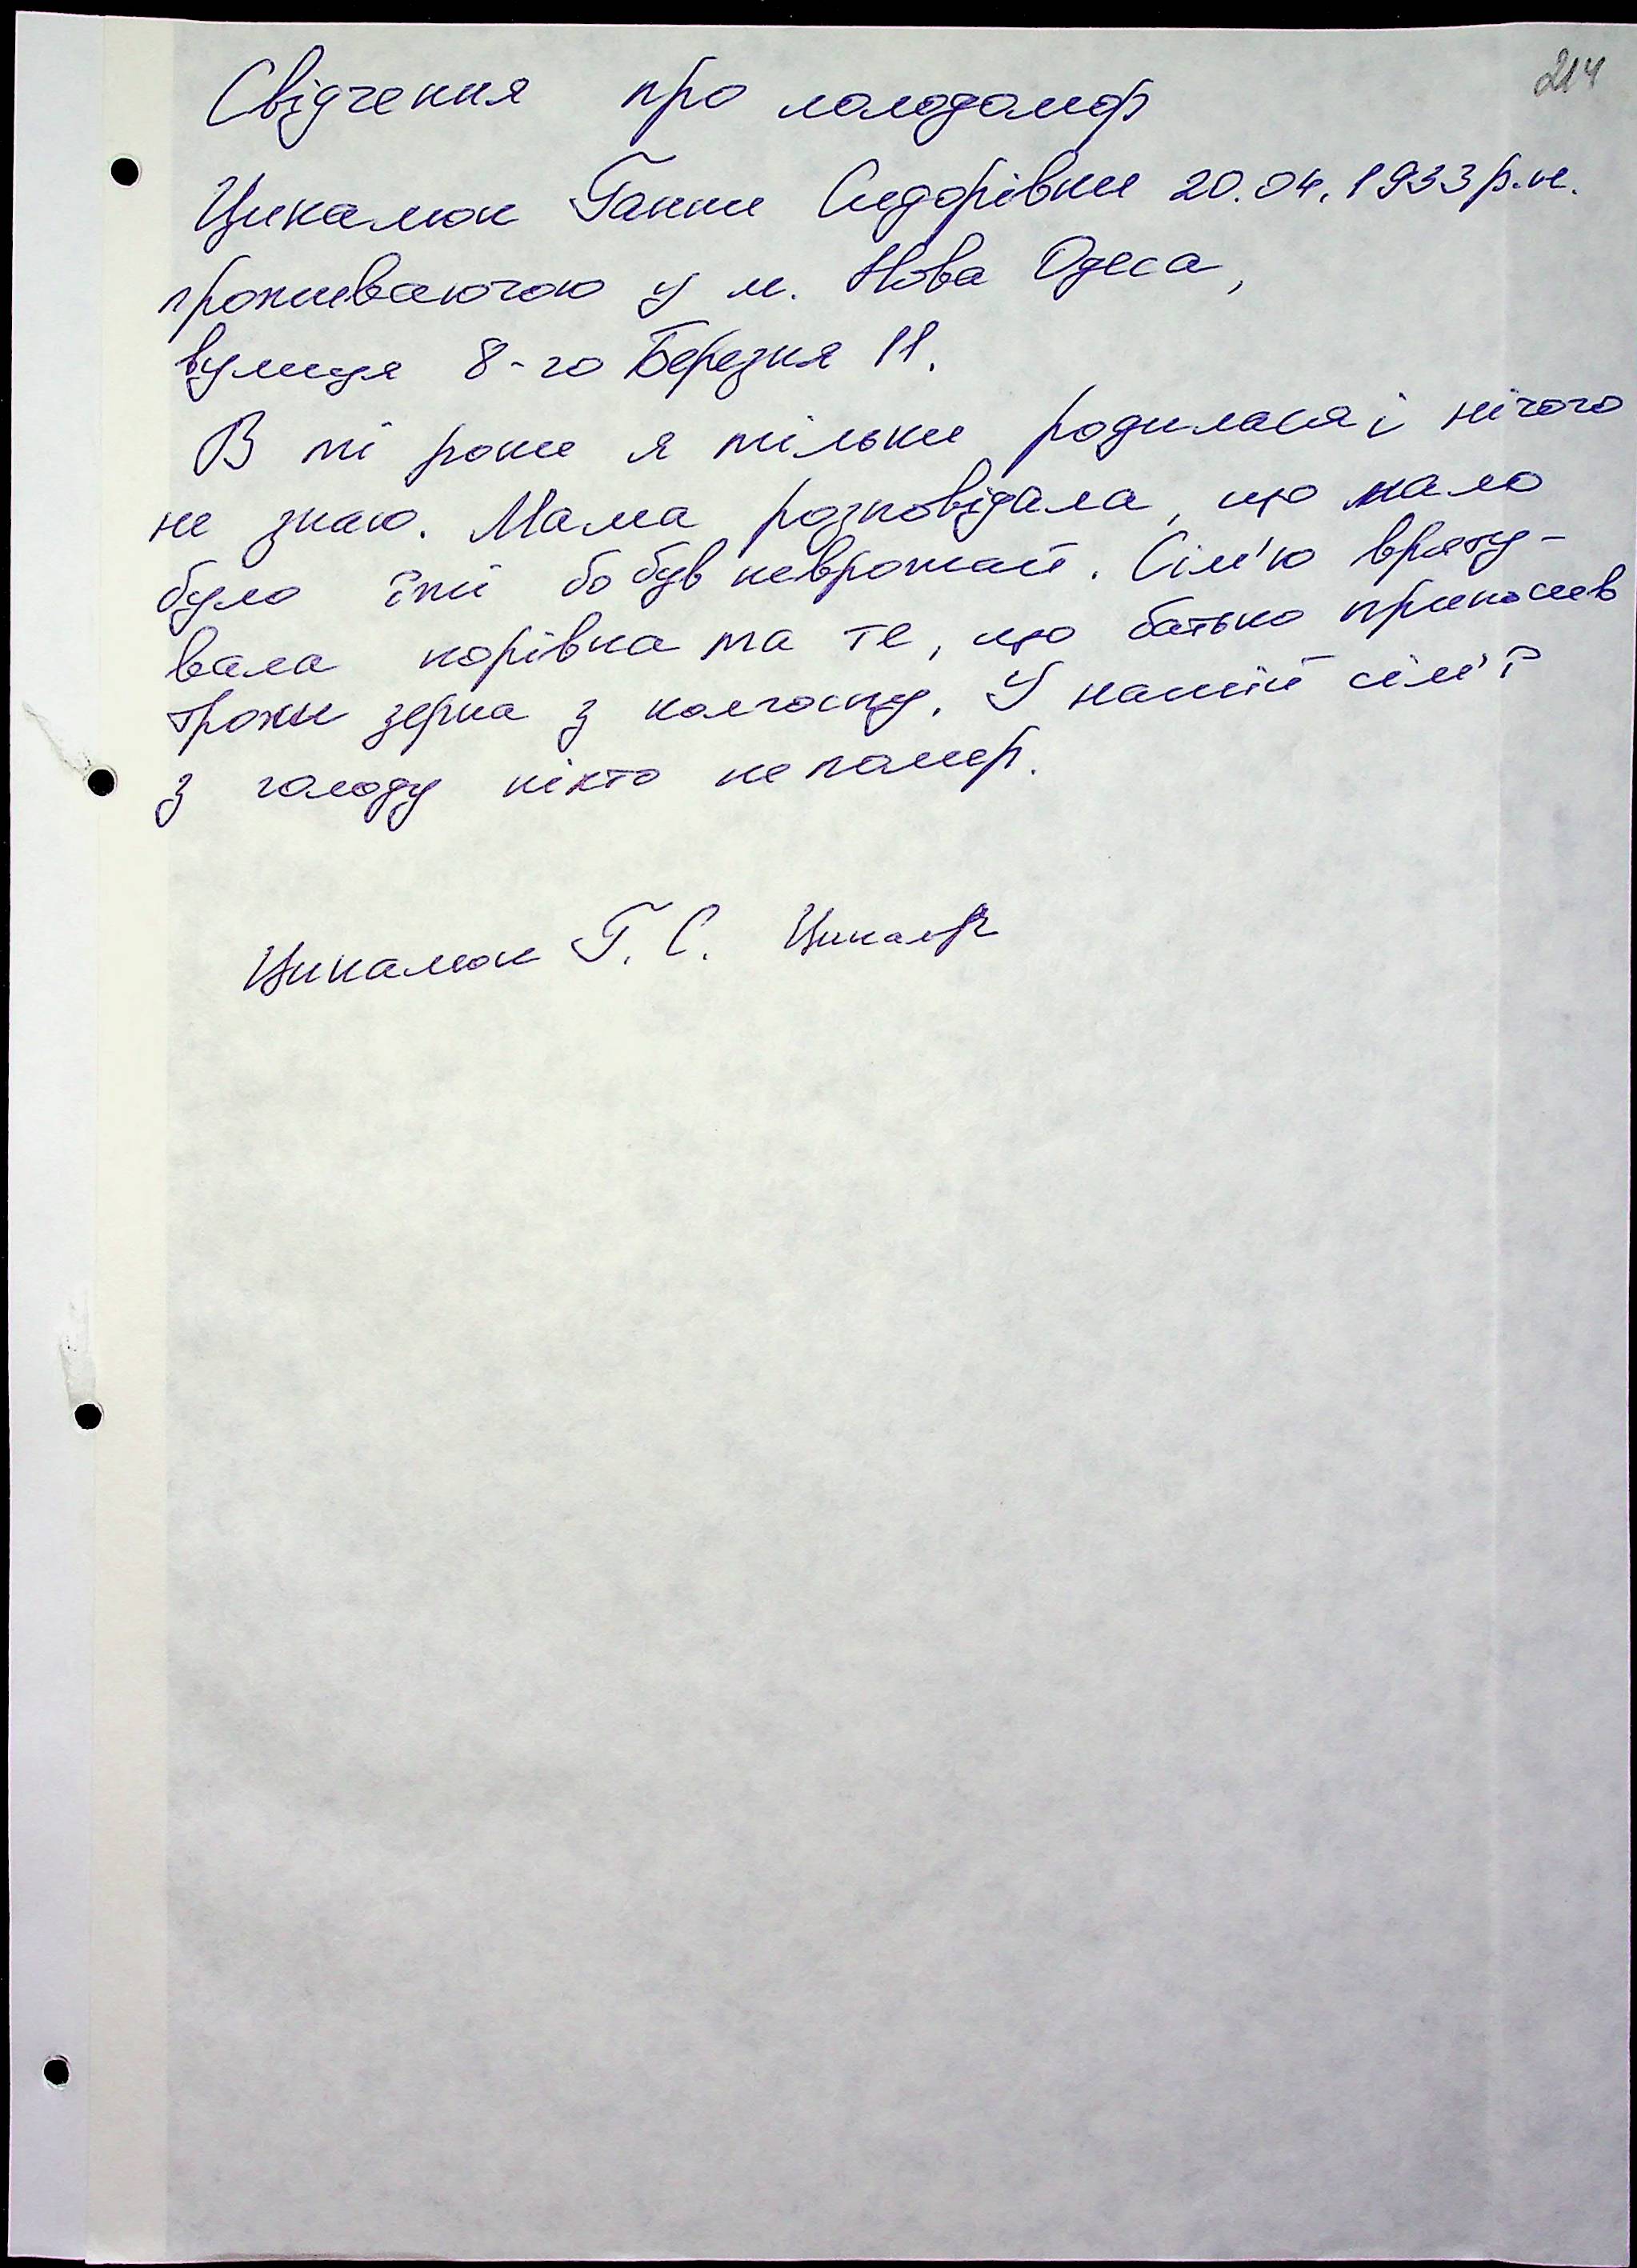 214
Свідчення про голодомор
Цикалюк Ганни Сидорівни 20.04.1933 р.н.
проживаючою у м. Нова Одеса,
вулиця 8-го Березня 11.
В ті роки я тільки родилася і нічого
не знаю. Мама розповідала, що мало
було їжі бо був неврожай. Сім'ю вряту-
вала корівка та те, що батько приносив
трохи зерна з колгоспу. У нашій сім'ї
з голоду ніхто не помер.
Цикалюк Г. С.